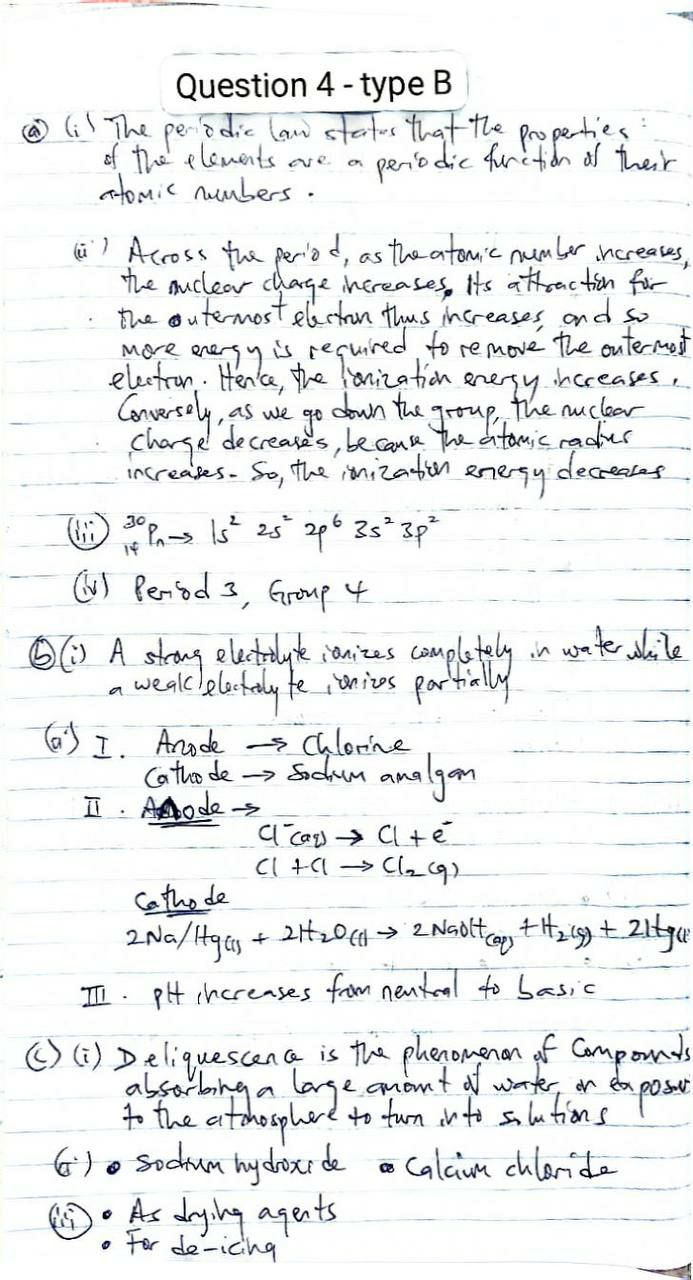 Question 4 - type B
(a) (i) The periodic law states that the properties
of the elements are a periodic function of their
atomic numbers.
(ii) Across the period, as the atomic number increases,
the nuclear charge increases. Its attraction for
the outermost electron thus increases, and so
more energy is required to remove the outermost
electron. Hence, the ionization energy increases.
Conversely, as we go down the group, the nuclear
charge decreases, because the atomic radius
increases. So, the ionization energy decreases
(iii) ³⁰₁₄Pn → 1s² 2s² 2p⁶ 3s² 3p²
(iv) Period 3, Group 4
(b) (i) A strong electrolyte ionizes completely in water while
a weak electrolyte ionizes partially
(ii) I. Anode → Chlorine
Cathode → Sodium amalgam
II. Anode →
Cl⁻(aq) → Cl + e⁻
Cl + Cl → Cl₂(g)
Cathode
2Na/Hg(l) + 2H₂O(l) → 2NaOH(aq) + H₂(g) + 2Hg(l
III. pH increases from neutral to basic
(c) (i) Deliquescence is the phenomenon of Compounds
absorbing a large amount of water on exposure
to the atmosphere to turn into solutions
(ii) • Sodium hydroxide • Calcium chloride
(iii) • As drying agents
• For de-icing